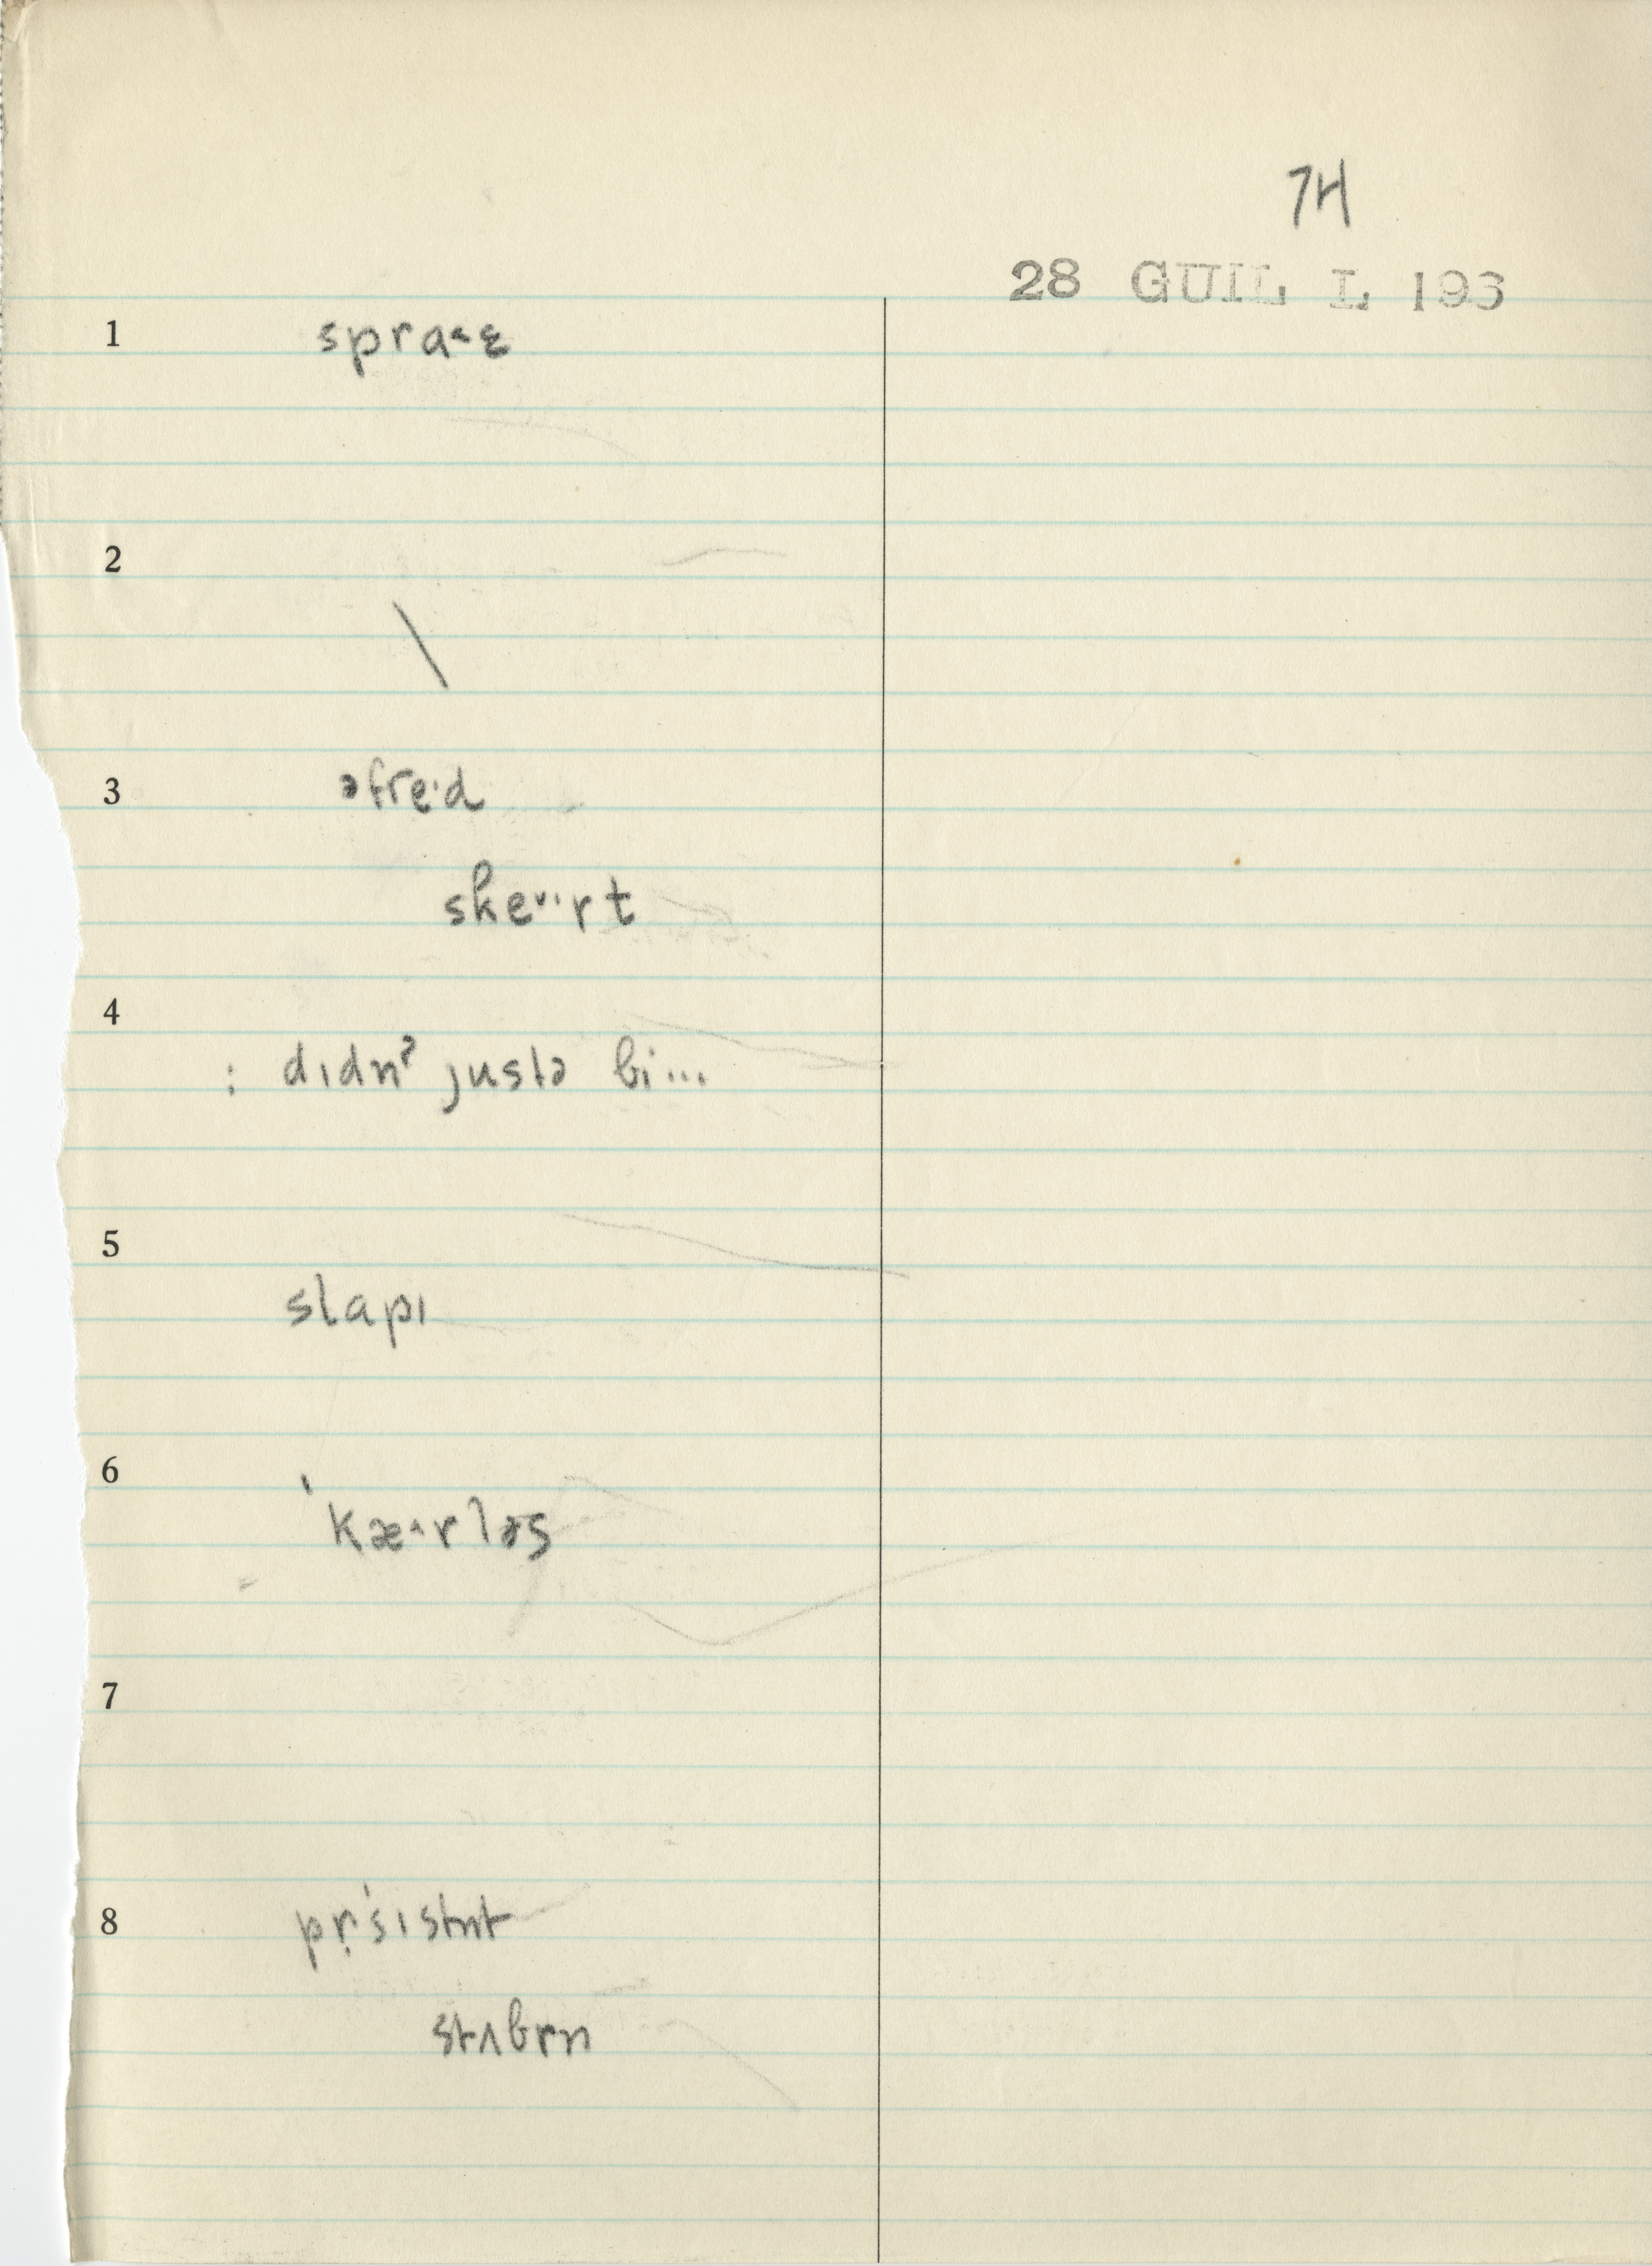 7H
28 GUIL L 193
1 spra˂ɛ
2 \
3 əfre·d
ske˅·rt
4 : dɪdnˀ justə bi...
5 slapɪ
6 ˈkæ^rləs
7
8 pr̩ˈsɪstnt
stʌbrn